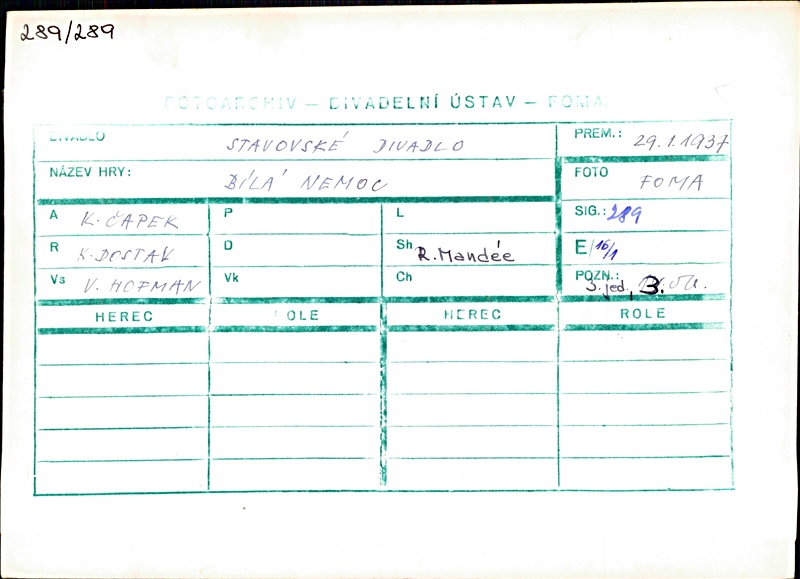 289/289
FOTOARCHIV — DIVADELNÍ ÚSTAV — FOMA
DIVADLO STAVOVSKÉ DIVADLO PREM.: 29.1.1937
NÁZEV HRY: BÍLÁ NEMOC FOTO FOMA
A K. ČAPEK P L SIG.: 289
R K. DOSTAL D Sh R. Mandée E/16/1
Vs V. HOFMAN Vk Ch POZN.: 3. jed, 3.
HEREC ROLE HEREC ROLE